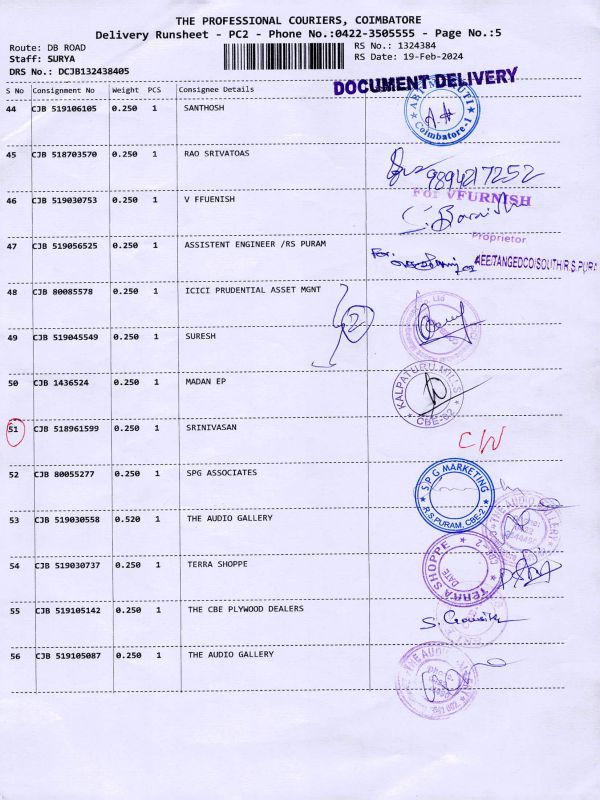 THE PROFESSIONAL COURIERS, COIMBATORE
Delivery Runsheet - PC2 - Phone No.:0422-3505555 - Page No.:5
Route: DB ROAD RS No.: 1324384
Staff: SURYA RS Date: 19-Feb-2024
DRS No.: DCJB132438405
DOCUMENT DELIVERY
S No Consignment No Weight PCS Consignee Details
44 CJB 519106105 0.250 1 SANTHOSH
Coimbatore-1
45 CJB 518703570 0.250 1 RAO SRIVATOAS
9894217252
46 CJB 519030753 0.250 1 V FFUENISH
For VFURNISH
Proprietor
47 CJB 519056525 0.250 1 ASSISTENT ENGINEER /RS PURAM
For: AEE/TANGEDCO/SOUTH/R.S.PURA
48 CJB 80085578 0.250 1 ICICI PRUDENTIAL ASSET MGNT
2
49 CJB 519045549 0.250 1 SURESH
50 CJB 1436524 0.250 1 MADAN EP
KALPATURU MILLS
CBE-02
51 CJB 518961599 0.250 1 SRINIVASAN
CW
52 CJB 80055277 0.250 1 SPG ASSOCIATES
SPG MARKETING
R.S PURAM, CBE-2
53 CJB 519030558 0.520 1 THE AUDIO GALLERY
THE AUDIO GALLERY
54 CJB 519030737 0.250 1 TERRA SHOPPE
TERRA SHOPPE
DATE
55 CJB 519105142 0.250 1 THE CBE PLYWOOD DEALERS
56 CJB 519105087 0.250 1 THE AUDIO GALLERY